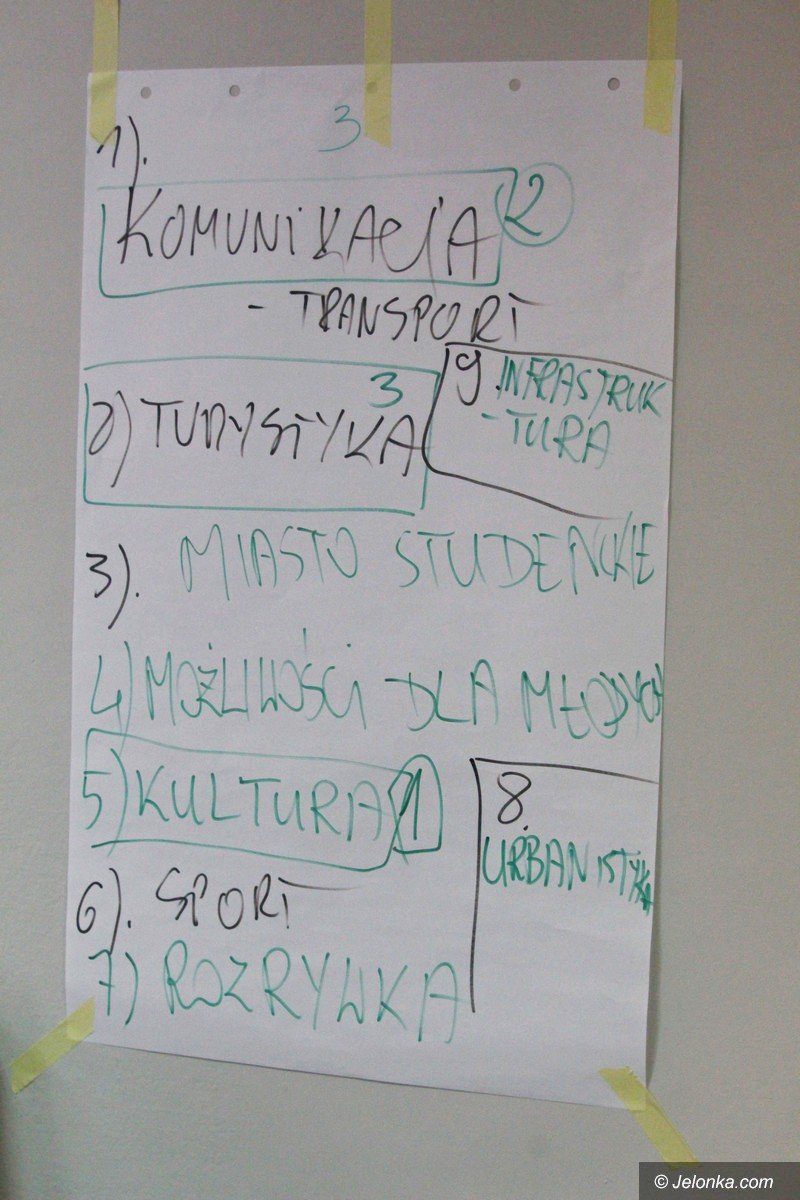 3
1).
KOMUNIKACJA 2
- TRANSPORT
2) TURYSTYKA 3
9. INFRASTRUK
- TURA
3). MIASTO STUDENCKIE
4) MOŻLIWOŚCI DLA MŁODYCH
5) KULTURA 1
8.
URBANISTYKA
6). SPORT
7) ROZRYWKA
© Jelonka.com